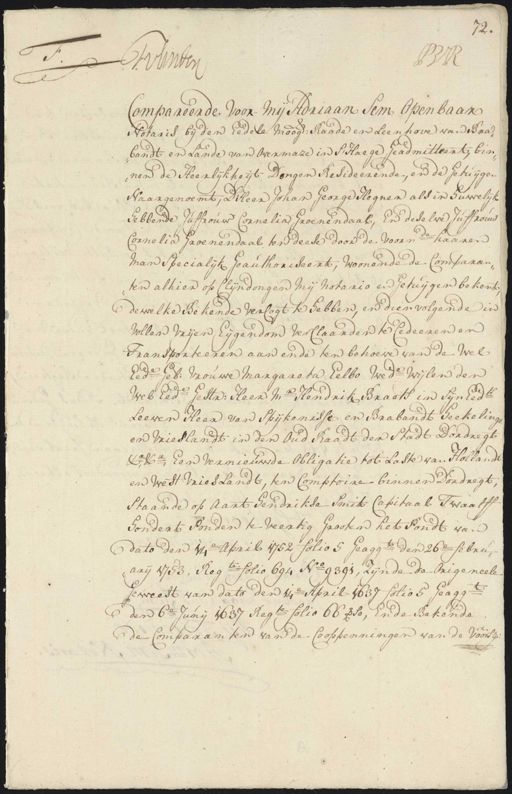 72.
F.
Compareerde voor mij Adriaan Sem Openbaar
Notaris bij den Edele Moog: Raade en Leenhove van Braa,
bandt en Lande van Overmaze in S'Haege Geadmitteert, bin,
nen de Heerlijkheijt Dongen Resideerende, en de Getuijge
Naargenoemt, d'Heer Johan George Hogner als in Huwelijk
hebbende Juffrouw Cornelia Groenendaal, En deselve Juffrouw
Cornelia Groenendaal ten deese door de voorn: haaren
man Specialijk Geauthoriseert, woonende de Comparan,
ten alhier op Kleijn dongen Mij Notario en Getuijgen bekent,
dewelke Bekende verkogt te hebben, en dien volgende in
vollen vrijen Eijgendom verClaarden te Cedeeren en
Transporteeren aan ende ten behoeve van de Wel
Ede Geb: Vrouwe Margareta Eelbo Wede wijlen den
Wel Ede Gestr: Heer Mr Hendrik Braets in Sijn Ed:
Leeven Heer van Spijkenisse en Brabandt Seekelinge
en Vrieslandt in den Oud Raadt der Stadt Dordregt
Een vernieuwde Obligatie tot Laste van Hollandt
en West Vrieslandt, ten Comptoire binnen Dordregt,
Staande op Aart Hendrikse Smit Capitaal Twaalff
honderd Ponden te veertig Grooten het Pondt van
dato den 14e April 1752 folio 5 Geaggt den 26e Febru,
arij 1753. Regt folio 694 No 9391, Zijnde de Origeneele
Geweest van dato den 14e April 1637 folio 5 Geaggt
den 6e Junij 1637 Regt folio 66 vso, Ende Bekende
de Comparanten van de Cooppenningen van de voors: